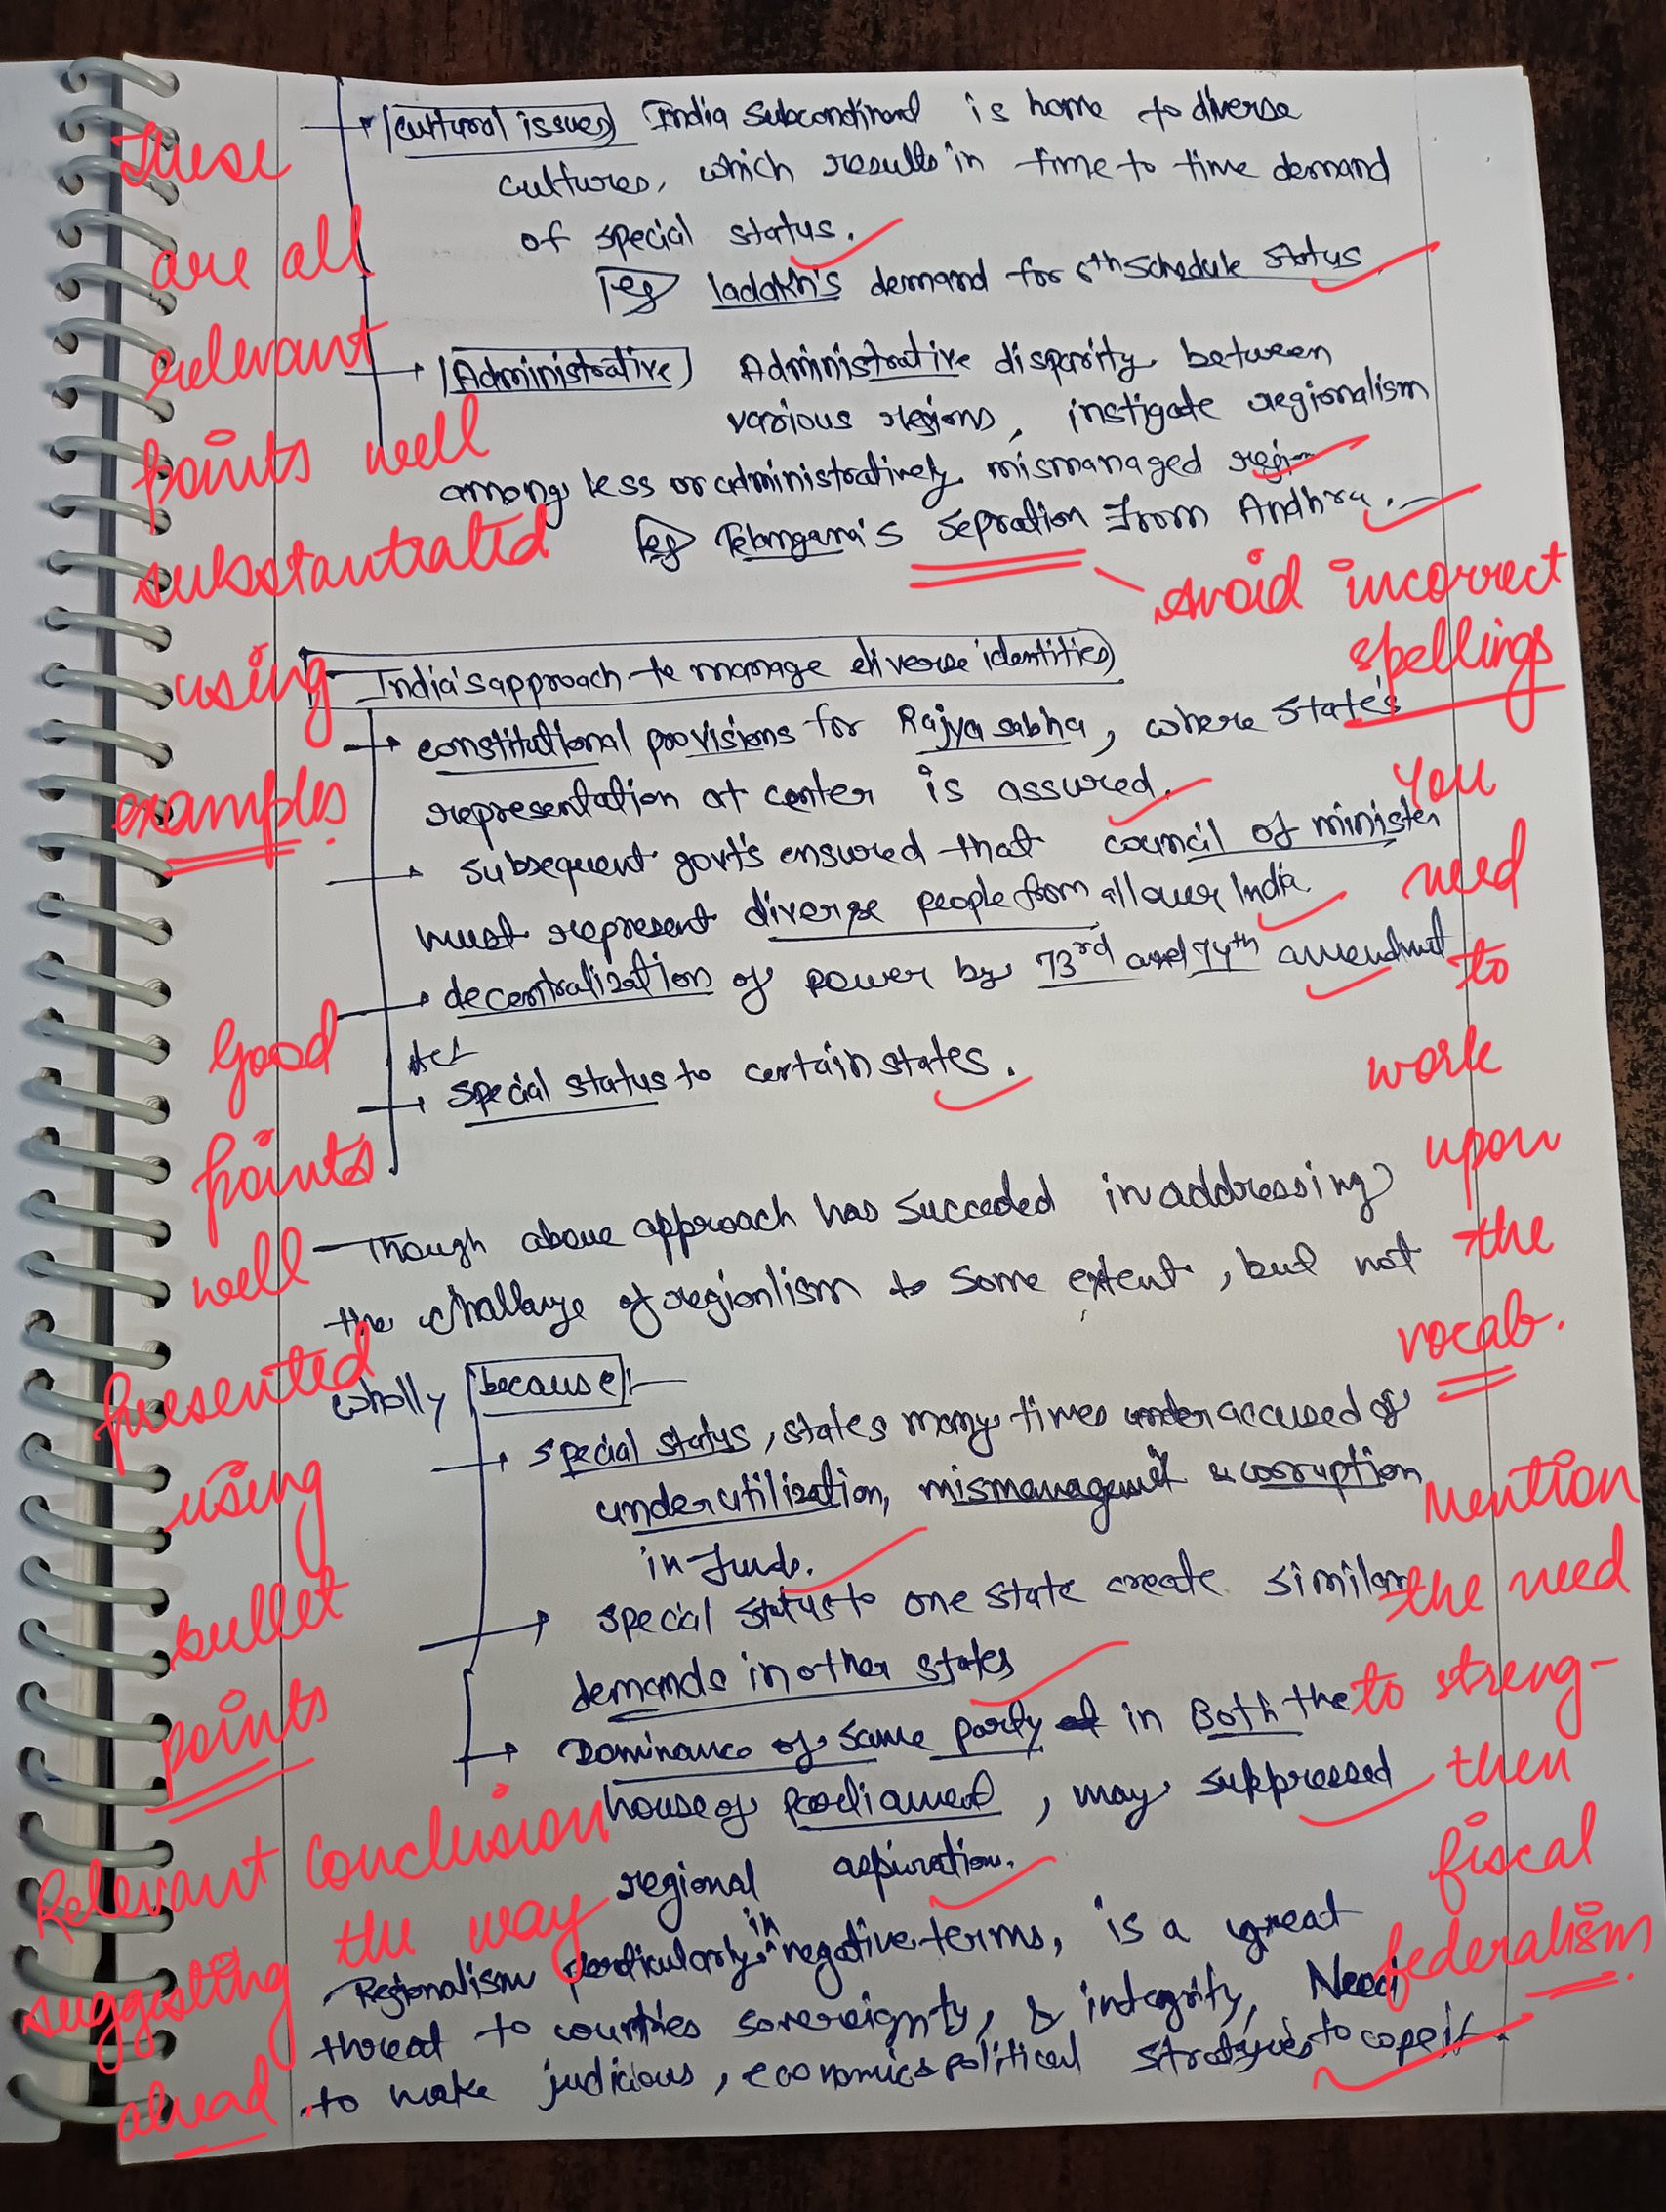 Cultural issues India Subcontinent is home to diverse
cultures, which results in time to time demand
of special status.
eg ladakh's demand for 6th Schedule status
Administrative Administrative disparity between
various regions, instigate regionalism
among less or administratively mismanaged regi-
eg Telangana's Sepration From Andhra.
India's approach to manage diverse identities
constitutional provisions for Rajya sabha, where state's
representation at center is assured.
subsequent govt's ensured that council of minister
must represent diverse people from all over India
decentralization of power by 73rd and 74th amendment
Act
special status to certain states.
Though above approach has succeded in addressing
the challenge of regionlism to some extent, but not
wholly because:-
special status, states many times under accused of
underutilization, mismanagement & corruption
in funds.
special status to one state create similar
demands in other states
Dominance of same party in Both the
house of parliament, may suppressed
regional aspiration.
Regionalism particularly in negative terms, is a great
threat to countries sovereignty, & integrity, Need
to make judicious, economic & political strategies to cope it.
These
are all
relevant
points well
substantiated
using
examples.
Avoid incorrect
spellings
You
need
to
work
upon
the
vocab.
Good
points
well
presented
using
bullet
points
Mention
the need
to streng-
then
fiscal
federalism.
Relevant conclusion
suggesting the way
ahead.